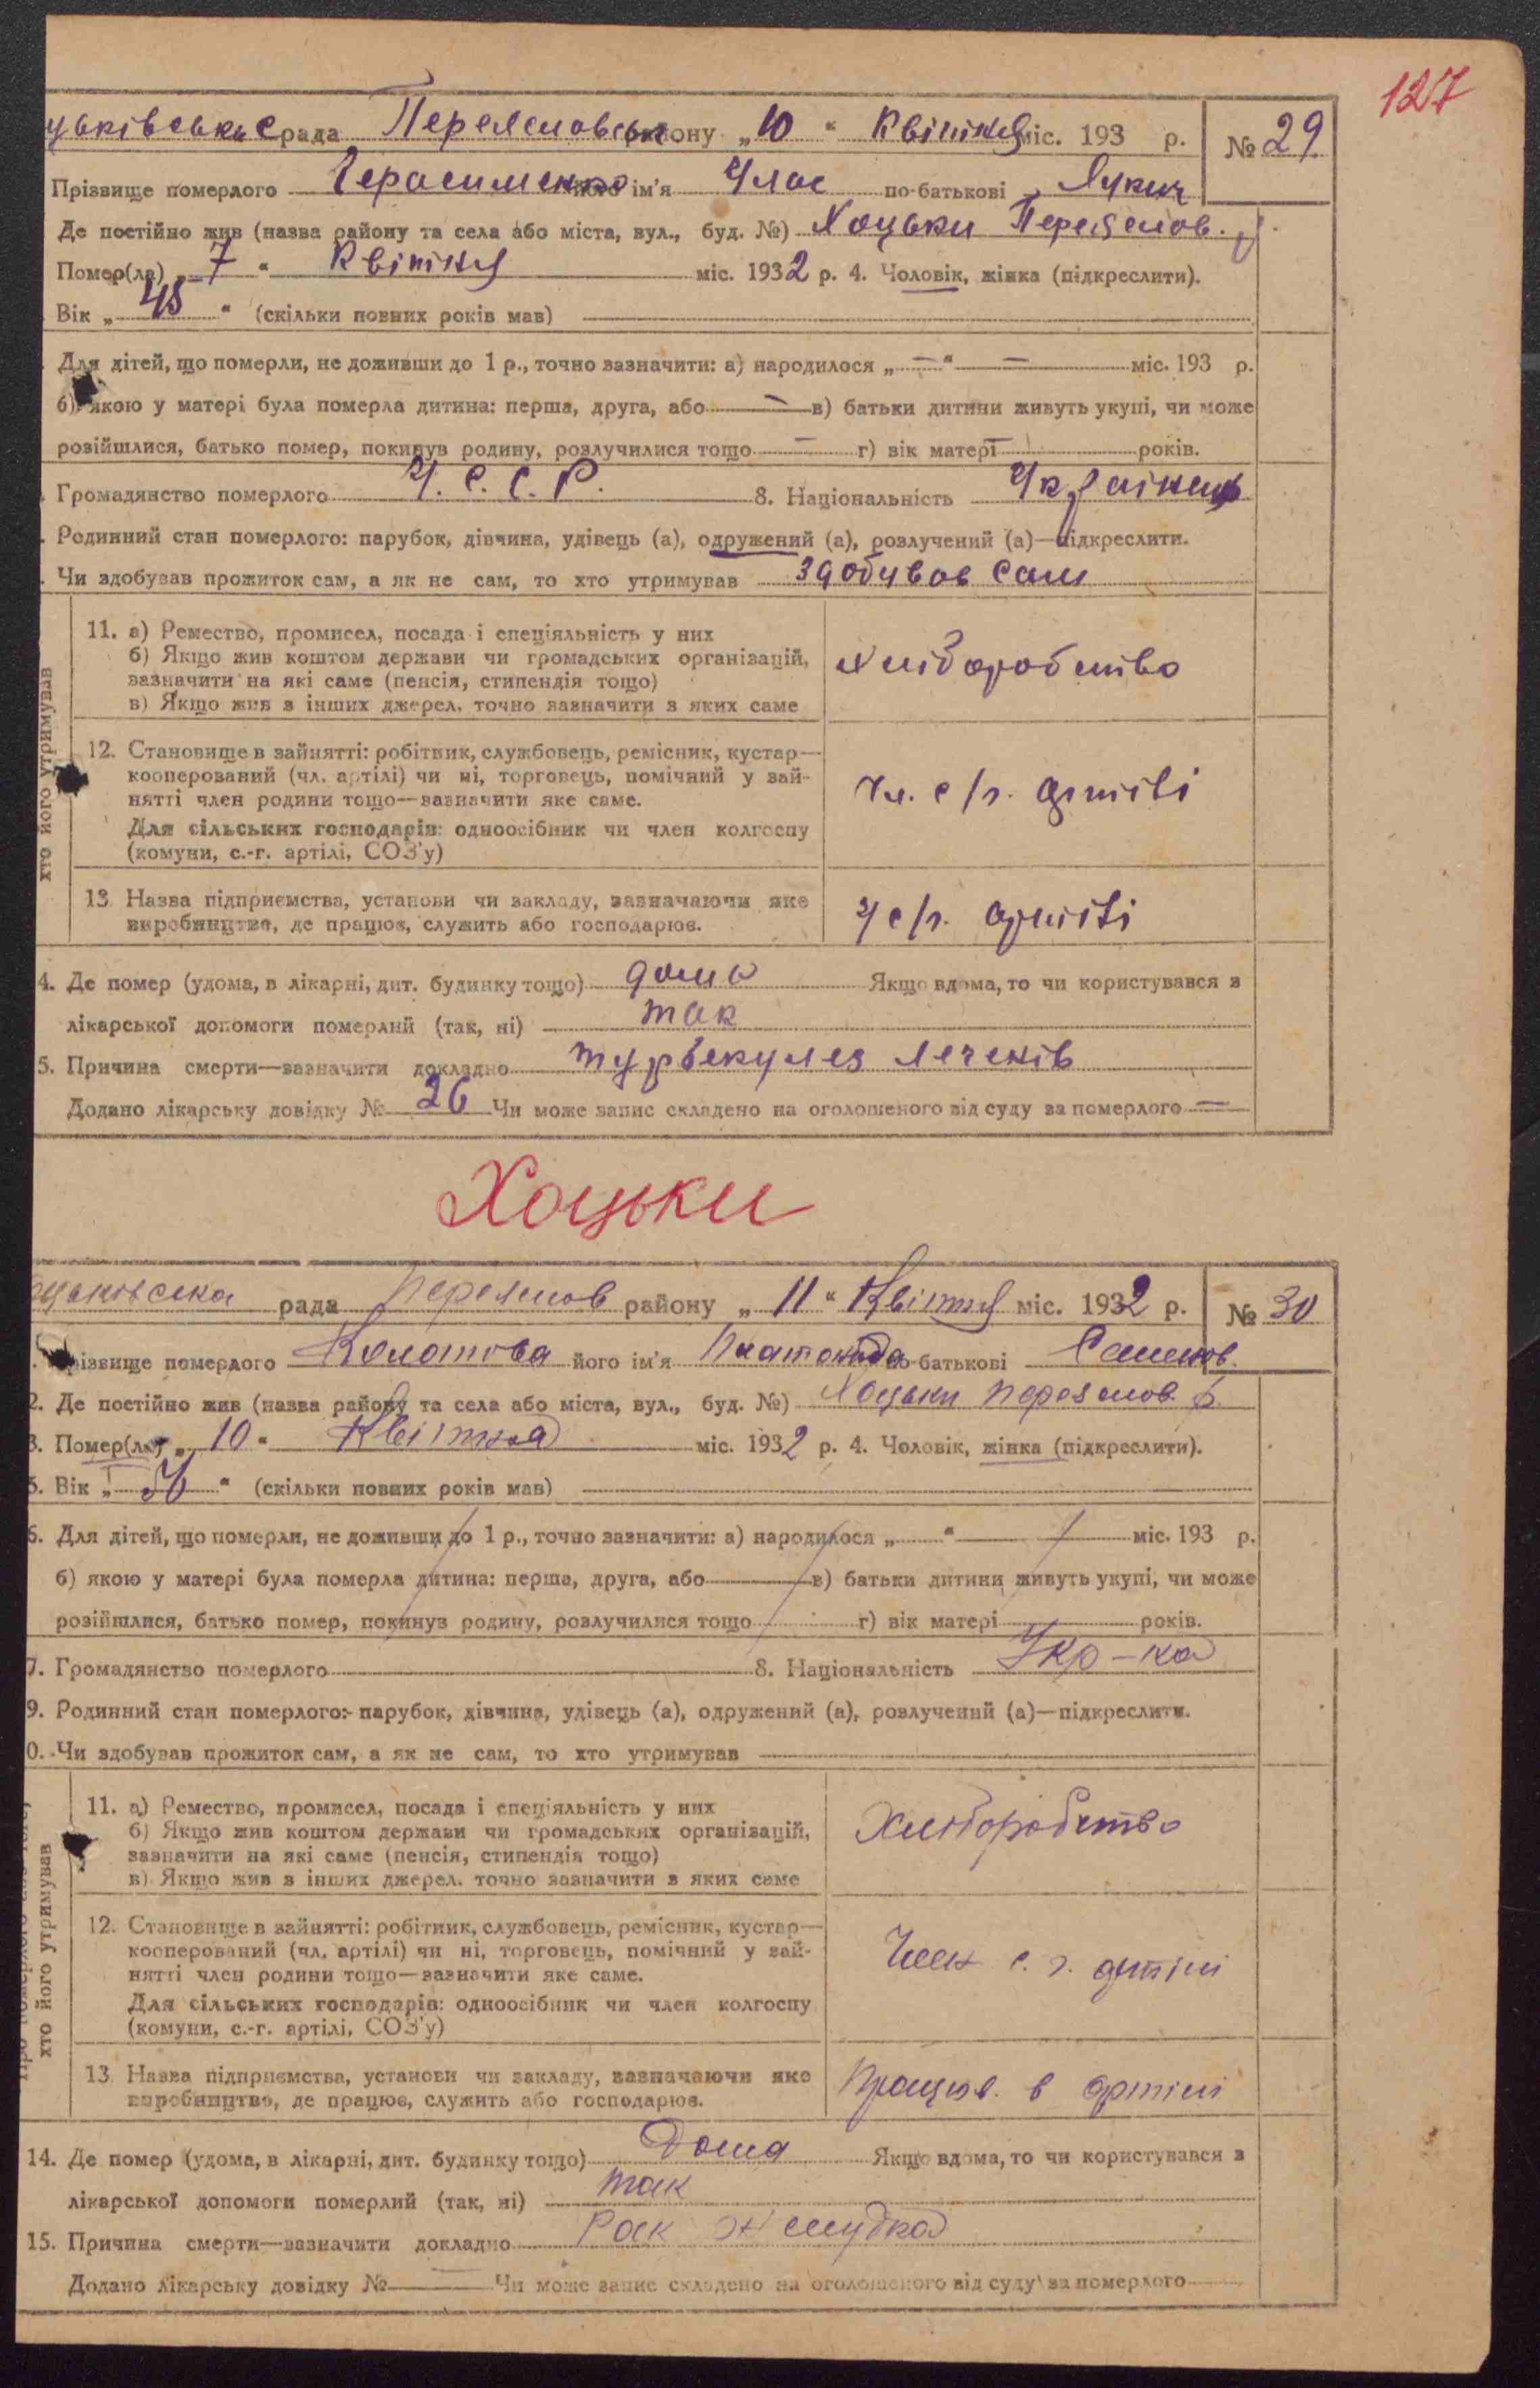 127
цьківська рада Переяславськ району „10“ Квітня міс. 193 р. № 29
Прізвище померлого Герасименко його ім'я Улас по-батькові Лукич
Де постійно жив (назва району та села або міста, вул., буд. №) Хоцьки Переяслов.
Помер(ла) „7“ Квітня міс. 1932 р. 4. Чоловік, жінка (підкреслити).
Вік „45“ (скільки повних років мав)
Для дітей, що померли, не доживши до 1 р., точно зазначити: а) народилося „—“ — міс. 193 р.
б) якою у матері була померла дитина: перша, друга, або — в) батьки дитини живуть укупі, чи може
розійшлися, батько помер, покинув родину, розлучилися тощо — г) вік матері — років.
Громадянство померлого У. С. С. Р. 8. Національність Українець
Родинний стан померлого: парубок, дівчина, удівець (а), одружений (а), розлучений (а)—підкреслити.
Чи здобував прожиток сам, а як не сам, то хто утримував здобував сам
хто його утримував
11. а) Ремество, промисел, посада і спеціяльність у них
б) Якщо жив коштом держави чи громадських організацій,
зазначити на які саме (пенсія, стипендія тощо)
в) Якщо жив з інших джерел, точно зазначити з яких саме
Хліборобство
12. Становище в зайнятті: робітник, службовець, ремісник, кустар—
кооперований (чл. артілі) чи ні, торговець, помічний у зай-
нятті член родини тощо—зазначити яке саме.
Для сільських господарів: одноосібник чи член колгоспу
(комуни, с.-г. артілі, СОЗ'у)
Чл. с/г. артілі
13. Назва підприємства, установи чи закладу, зазначаючи яке
виробництво, де працює, служить або господарює.
У с/г. артілі
4. Де помер (удома, в лікарні, дит. будинку тощо) дома Якщо вдома, то чи користувався з
лікарської допомоги померлий (так, ні) так
5. Причина смерти—зазначити докладно турбекулез легенів
Додано лікарську довідку № 26 Чи може запис складено на оголошеного від суду за померлого —
Хоцьки
оцьковська рада Переяслов району „11“ Квітня міс. 1932 р. № 30
різвище померлого його ім'я по-батькові Семенов.
2. Де постійно жив (назва району та села або міста, вул., буд. №) Хоцьки Переяслов. р.
3. Помер(ла) „10“ Квітня міс. 1932 р. 4. Чоловік, жінка (підкреслити).
5. Вік „56“ (скільки повних років мав)
6. Для дітей, що померли, не доживши до 1 р., точно зазначити: а) народилося „ “ міс. 193 р.
б) якою у матері була померла дитина: перша, друга, або в) батьки дитини живуть укупі, чи може
розійшлися, батько помер, покинув родину, розлучилися тощо г) вік матері років.
7. Громадянство померлого 8. Національність Укр-ка
9. Родинний стан померлого: парубок, дівчина, удівець (а), одружений (а), розлучений (а)—підкреслити.
0. Чи здобував прожиток сам, а як не сам, то хто утримував
хто його утримував
11. а) Ремество, промисел, посада і спеціяльність у них
б) Якщо жив коштом держави чи громадських організацій,
зазначити на які саме (пенсія, стипендія тощо)
в) Якщо жив з інших джерел, точно зазначити з яких саме
Хліборобство
12. Становище в зайнятті: робітник, службовець, ремісник, кустар—
кооперований (чл. артілі) чи ні, торговець, помічний у зай-
нятті член родини тощо—зазначити яке саме.
Для сільських господарів: одноосібник чи член колгоспу
(комуни, с.-г. артілі, СОЗ'у)
Член с. г. артілі
13. Назва підприємства, установи чи закладу, зазначаючи яке
виробництво, де працює, служить або господарює.
Працюв. в артілі
14. Де помер (удома, в лікарні, дит. будинку тощо) Дома Якщо вдома, то чи користувався з
лікарської допомоги померлий (так, ні) так
15. Причина смерти—зазначити докладно Рак желудка
Додано лікарську довідку № — Чи може запис складено на оголошеного від суду за померлого